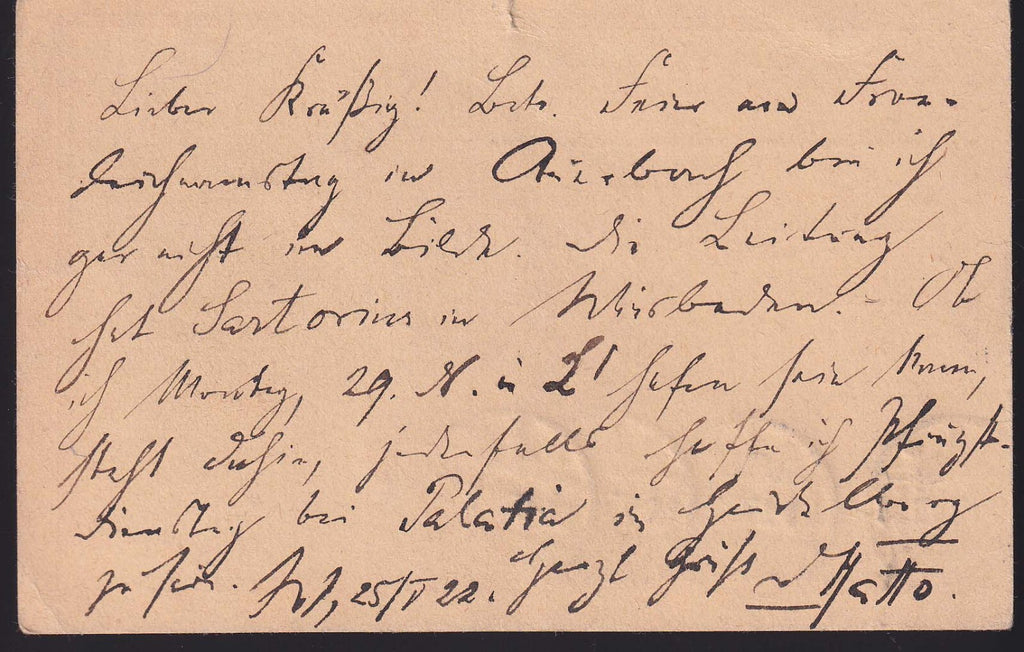 Lieber Kräßig! Betr. Feier am Fron-
leichnamstag in Auerbach bin ich
gar nicht im Bilde. Die Leitung
hat Sartorius in Wiesbaden. Ob
ich Montag, 29. d. in L'hafen sein kann,
steht dahin, jedenfalls hoffe ich Pfingst-
dienstag bei Palatia in Heidelberg
zu sein. 25/V 22. Herzl Gruß